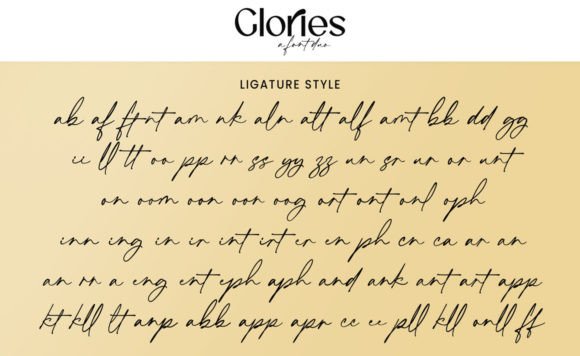 Glories
a font duo
LIGATURE STYLE
ab af ft rnt am nk aln alt alf amt bb dd gg
ii ll tt oo pp rr ss yy zz un sr ur or unt
on oom oon oor oog ort ont onl oph
inn ing in ir int irt er en ph cn ca ar an
an rr a eng ent eph aph and ank ant art app
kt kll lt anp abb app apr cc ee pll kll onll ff